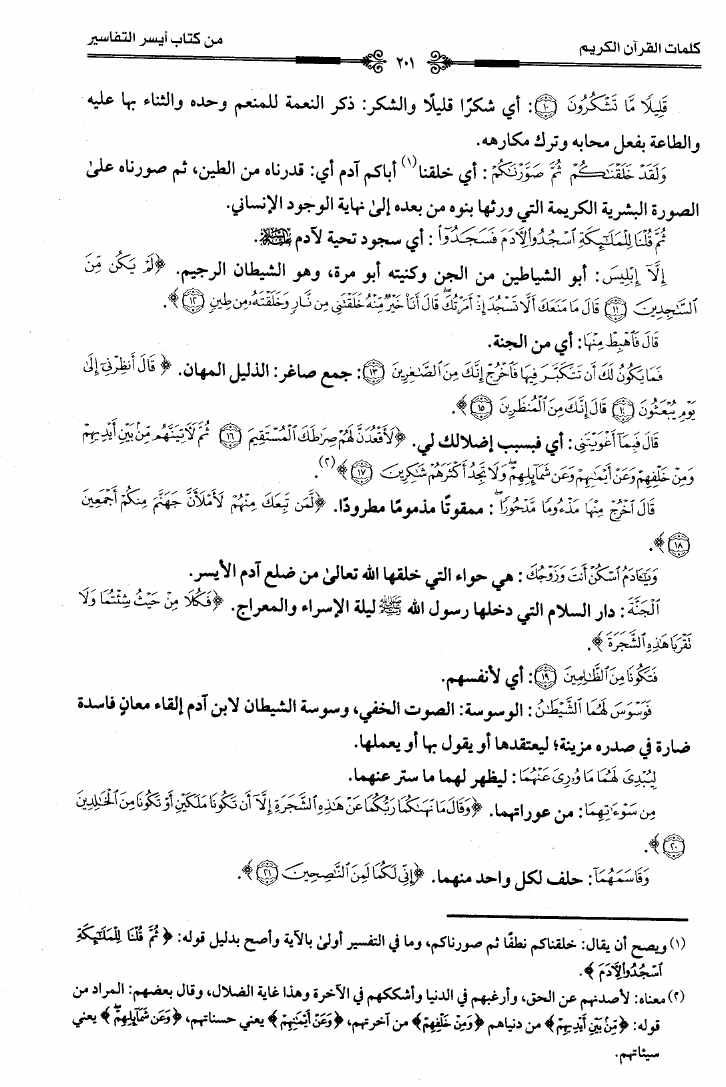 كلمات القرآن الكريم
٢٠١
من كتاب أيسر التفاسير
قَلِيلًا مَّا تَشْكُرُونَ ١٠: أي شكرًا قليلًا والشكر: ذكر النعمة للمنعم وحده والثناء بها عليه
والطاعة بفعل محابه وترك مكارهه.
وَلَقَدْ خَلَقْنَٰكُمْ ثُمَّ صَوَّرْنَٰكُمْ: أي خلقنا(١) أباكم آدم أي: قدرناه من الطين، ثم صورناه علىٰ
الصورة البشرية الكريمة التي ورثها بنوه من بعده إلىٰ نهاية الوجود الإنساني.
ثُمَّ قُلْنَا لِلْمَلَٰٓئِكَةِ ٱسْجُدُوا۟ لِءَادَمَ فَسَجَدُوٓا۟: أي سجود تحية لآدم ﷺ.
إِلَّآ إِبْلِيسَ: أبو الشياطين من الجن وكنيته أبو مرة، وهو الشيطان الرجيم. ﴿لَمْ يَكُن مِّنَ
ٱلسَّٰجِدِينَ ١١ قَالَ مَا مَنَعَكَ أَلَّا تَسْجُدَ إِذْ أَمَرْتُكَ قَالَ أَنَا۠ خَيْرٌ مِّنْهُ خَلَقْتَنِى مِن نَّارٍ وَخَلَقْتَهُۥ مِن طِينٍ ١٢﴾.
قَالَ فَٱهْبِطْ مِنْهَا: أي من الجنة.
فَمَا يَكُونُ لَكَ أَن تَتَكَبَّرَ فِيهَا فَٱخْرُجْ إِنَّكَ مِنَ ٱلصَّٰغِرِينَ ١٣: جمع صاغر: الذليل المهان. ﴿قَالَ أَنظِرْنِىٓ إِلَىٰ
يَوْمِ يُبْعَثُونَ ١٤ قَالَ إِنَّكَ مِنَ ٱلْمُنظَرِينَ ١٥﴾.
قَالَ فَبِمَآ أَغْوَيْتَنِى: أي فبسبب إضلالك لي. ﴿لَأَقْعُدَنَّ لَهُمْ صِرَٰطَكَ ٱلْمُسْتَقِيمَ ١٦ ثُمَّ لَءَاتِيَنَّهُم مِّنۢ بَيْنِ أَيْدِيهِمْ
وَمِنْ خَلْفِهِمْ وَعَنْ أَيْمَٰنِهِمْ وَعَن شَمَآئِلِهِمْ وَلَا تَجِدُ أَكْثَرَهُمْ شَٰكِرِينَ ١٧﴾(٢).
قَالَ ٱخْرُجْ مِنْهَا مَذْءُومًا مَّدْحُورًا: ممقوتًا مذمومًا مطرودًا. ﴿لَّمَن تَبِعَكَ مِنْهُمْ لَأَمْلَأَنَّ جَهَنَّمَ مِنكُمْ أَجْمَعِينَ
١٨﴾.
وَيَٰٓـَٔادَمُ ٱسْكُنْ أَنتَ وَزَوْجُكَ: هي حواء التي خلقها الله تعالىٰ من ضلع آدم الأيسر.
ٱلْجَنَّةَ: دار السلام التي دخلها رسول الله ﷺ ليلة الإسراء والمعراج. ﴿فَكُلَا مِنْ حَيْثُ شِئْتُمَا وَلَا
تَقْرَبَا هَٰذِهِ ٱلشَّجَرَةَ﴾.
فَتَكُونَا مِنَ ٱلظَّٰلِمِينَ ١٩: أي لأنفسهم.
فَوَسْوَسَ لَهُمَا ٱلشَّيْطَٰنُ: الوسوسة: الصوت الخفي، وسوسة الشيطان لابن آدم إلقاء معانٍ فاسدة
ضارة في صدره مزينة؛ ليعتقدها أو يقول بها أو يعملها.
لِيُبْدِىَ لَهُمَا مَا وُۥرِىَ عَنْهُمَا: ليظهر لهما ما ستر عنهما.
مِن سَوْءَٰتِهِمَا: من عوراتهما. ﴿وَقَالَ مَا نَهَىٰكُمَا رَبُّكُمَا عَنْ هَٰذِهِ ٱلشَّجَرَةِ إِلَّآ أَن تَكُونَا مَلَكَيْنِ أَوْ تَكُونَا مِنَ ٱلْخَٰلِدِينَ
٢٠﴾.
وَقَاسَمَهُمَآ: حلف لكل واحد منهما. ﴿إِنِّى لَكُمَا لَمِنَ ٱلنَّٰصِحِينَ ٢١﴾.
(١) ويصح أن يقال: خلقناكم نطفًا ثم صورناكم، وما في التفسير أولىٰ بالآية وأصح بدليل قوله: ﴿ثُمَّ قُلْنَا لِلْمَلَٰٓئِكَةِ
ٱسْجُدُوا۟ لِءَادَمَ﴾.
(٢) معناه: لأصدنهم عن الحق، وأرغبهم في الدنيا وأشككهم في الآخرة وهذا غاية الضلال، وقال بعضهم: المراد من
قوله: ﴿مِّنۢ بَيْنِ أَيْدِيهِمْ﴾ من دنياهم ﴿وَمِنْ خَلْفِهِمْ﴾ من آخرتهم، ﴿وَعَنْ أَيْمَٰنِهِمْ﴾ يعني حسناتهم، ﴿وَعَن شَمَآئِلِهِمْ﴾ يعني
سيئاتهم.